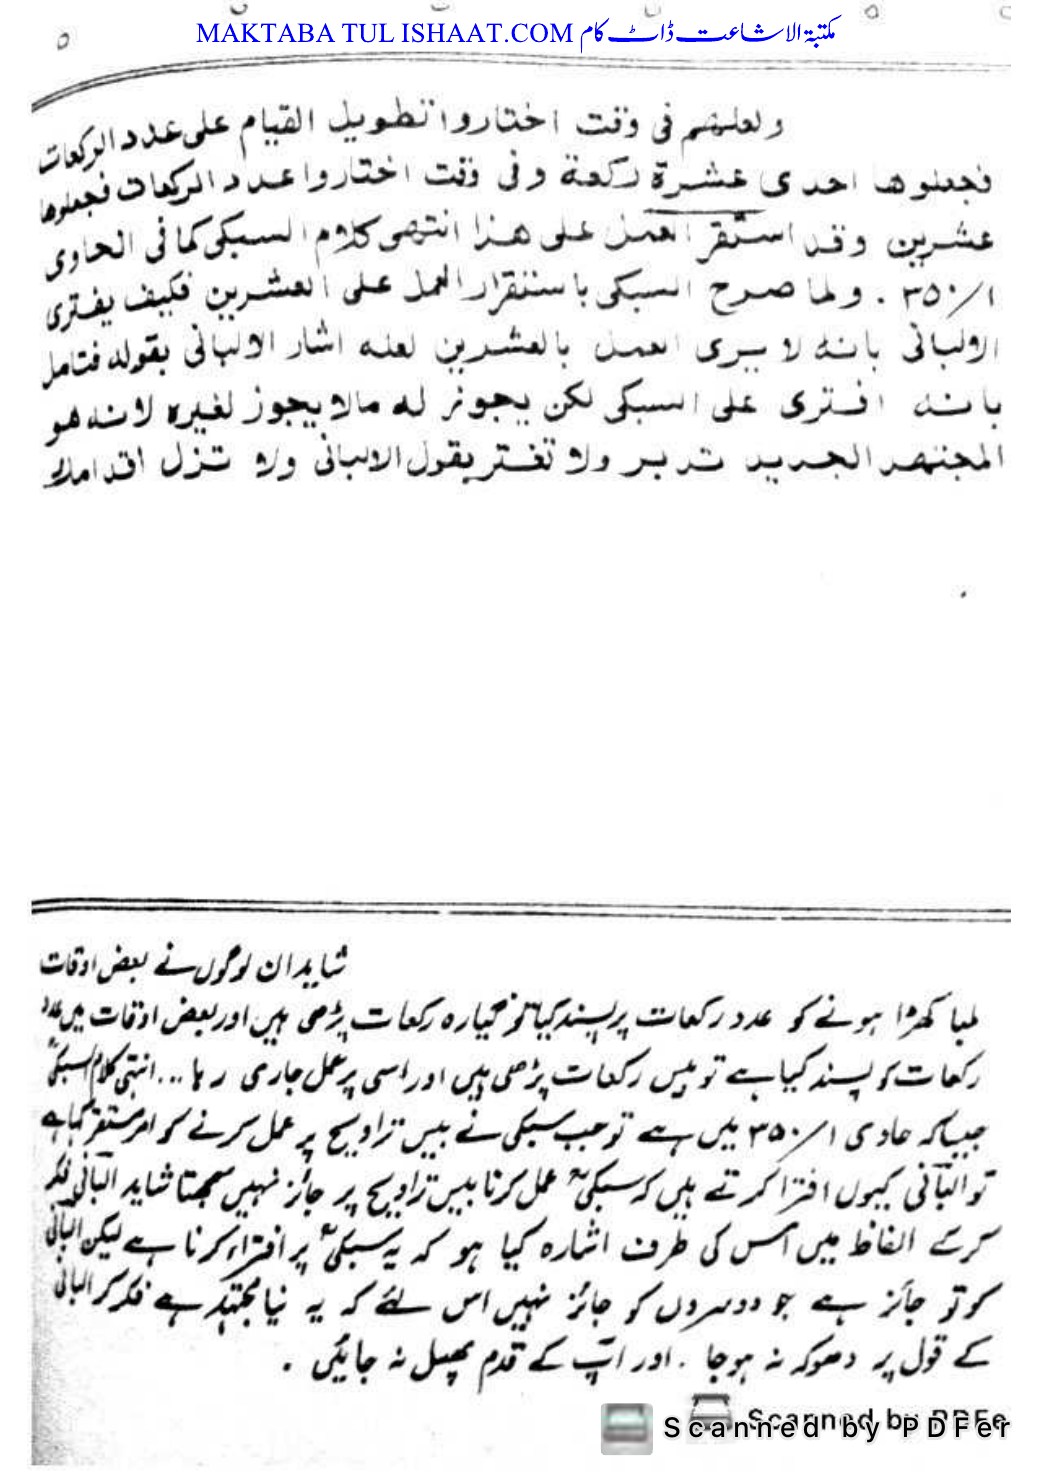 MAKTABA TUL ISHAAT.COM مکتبۃ الاشاعت ڈاٹ کام
ولعلهم فی وقت اختاروا تطویل القیام علی عدد الرکعات
فجعلوها احدی عشرة رکعة وفی وقت اختاروا عدد الرکعات فجعلوها
عشرین وقد استقر العمل علی هذا انتهی کلام السبکی کما فی الحاوی
۳۵۰/۱ . ولما صرح السبکی باستقرار العمل علی العشرین فکیف یفتری
الالبانی بانه لا یری العمل بالعشرین لعله اشار الالبانی بقوله فتامل
بانه افتری علی السبکی لکن یجوز له مالا یجوز لغیره لانه هو
المجتهد الجدید تدبر ولا تغتر بقول الالبانی ولا تزل اقدامك
شاید ان لوگوں نے بعض اوقات
لمبا کھڑا ہونے کو عدد رکعات پر پسند کیا تو گیارہ رکعات پڑھی ہیں اور بعض اوقات میں عدد
رکعات کو پسند کیا ہے تو بیس رکعات پڑھی ہیں اور اسی پر عمل جاری رہا ... انتہی کلام السبکیؒ
جیسا کہ حاوی ۳۵۰/۱ میں ہے تو جب سبکی نے بیس تراویح پر عمل کرنے کو امر مستقر کہا ہے
تو البانی کیوں افترا کرتے ہیں کہ سبکیؒ عمل کرنا بیس تراویح پر جائز نہیں سمجھتا شاید البانی فکر
کرکے الفاظ میں اس کی طرف اشارہ کیا ہو کہ یہ سبکیؒ پر افتراء کرنا ہے لیکن البانی
کو تو جائز ہے جو دوسروں کو جائز نہیں اس لئے کہ یہ نیا مجتہد ہے فکر کر البانی
کے قول پر دھوکہ نہ ہو جا . اور آپ کے قدم پھسل نہ جائیں .
Scanned by PDFer